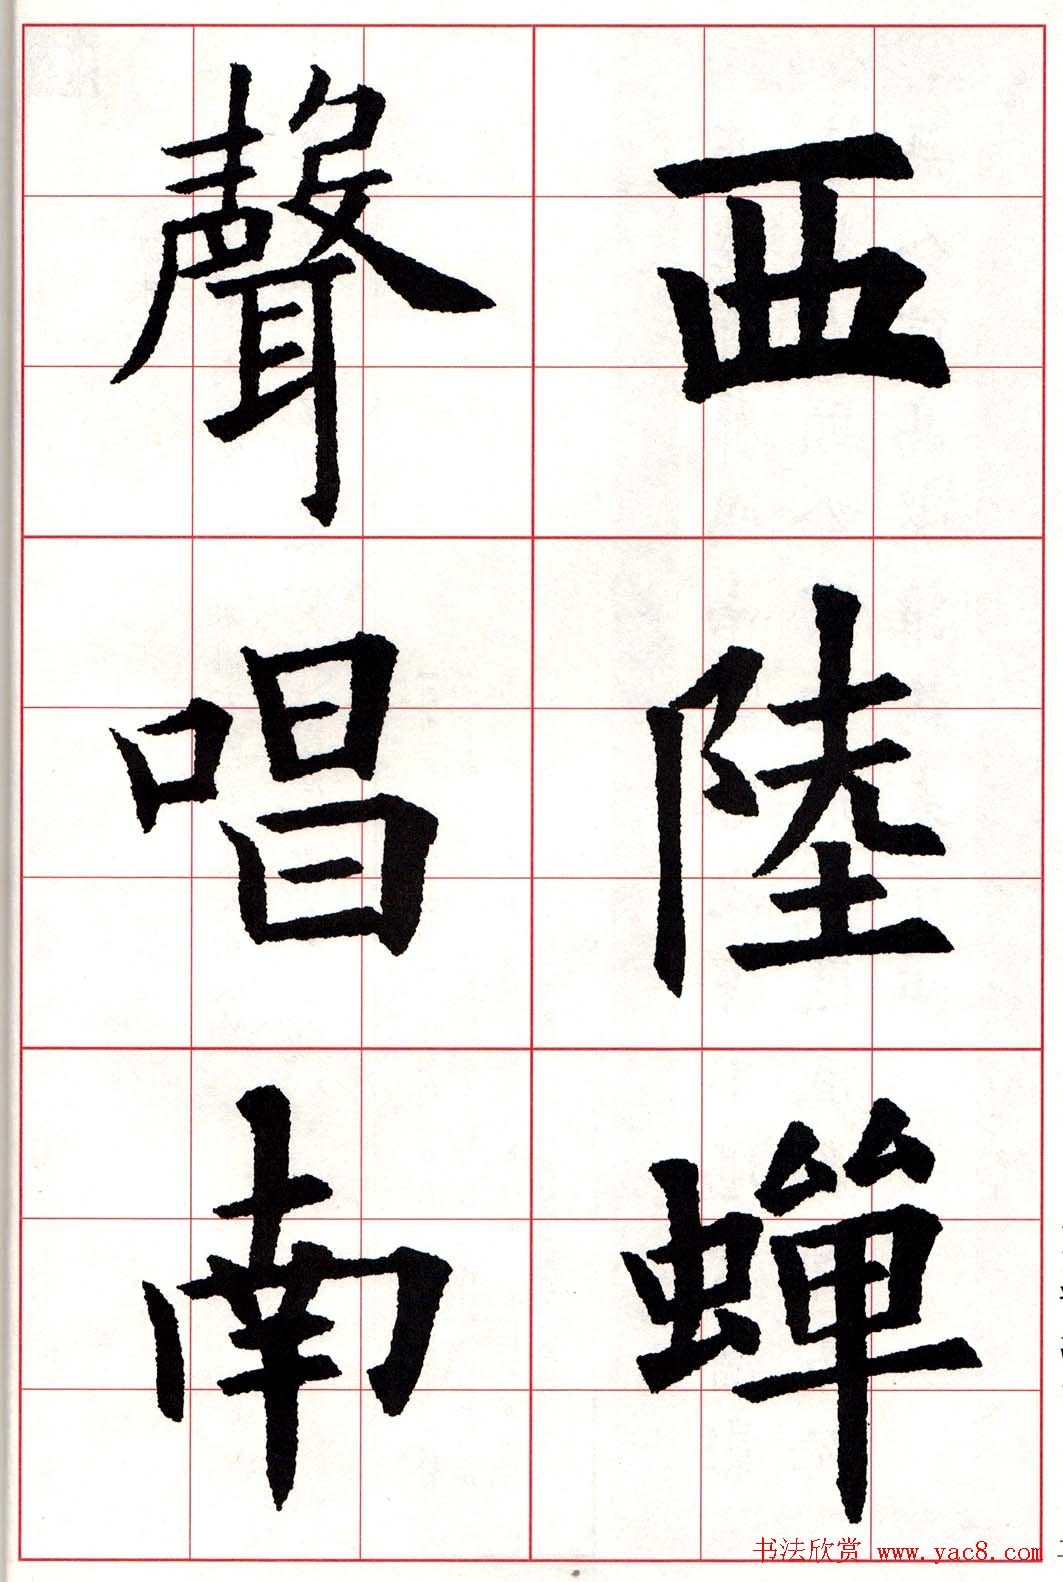 西陸蟬
聲唱南
书法欣赏 www.yac8.com